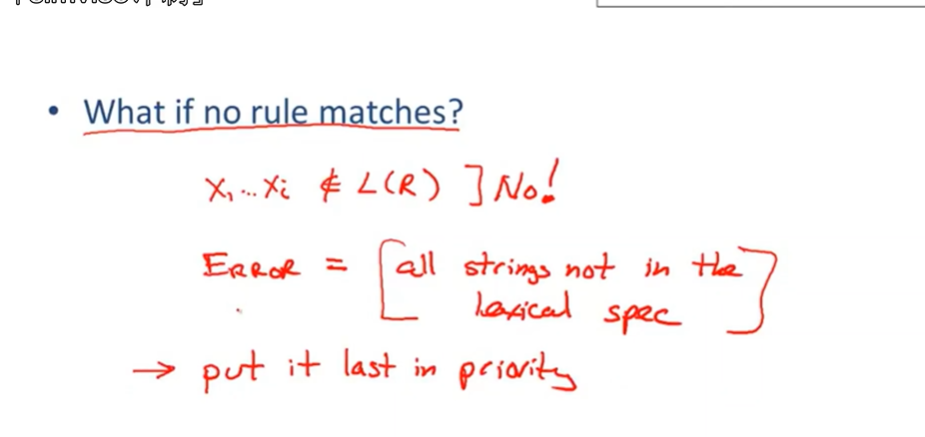 • What if no rule matches?
X₁...Xᵢ ∉ L(R) ] No!
ERROR = [all strings not in the
lexical spec]
→ put it last in priority